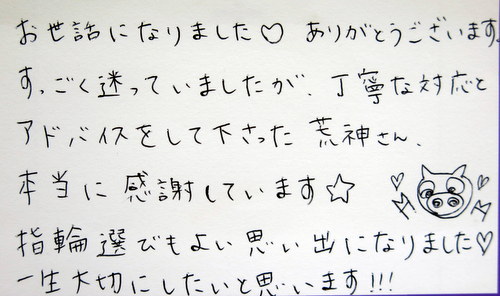 お世話になりました♡ ありがとうございます。
すっごく迷っていましたが、丁寧な対応と
アドバイスをして下さった荒神さん、
本当に感謝しています☆
指輪選びもよい思い出になりました♡
一生大切にしたいと思います!!!